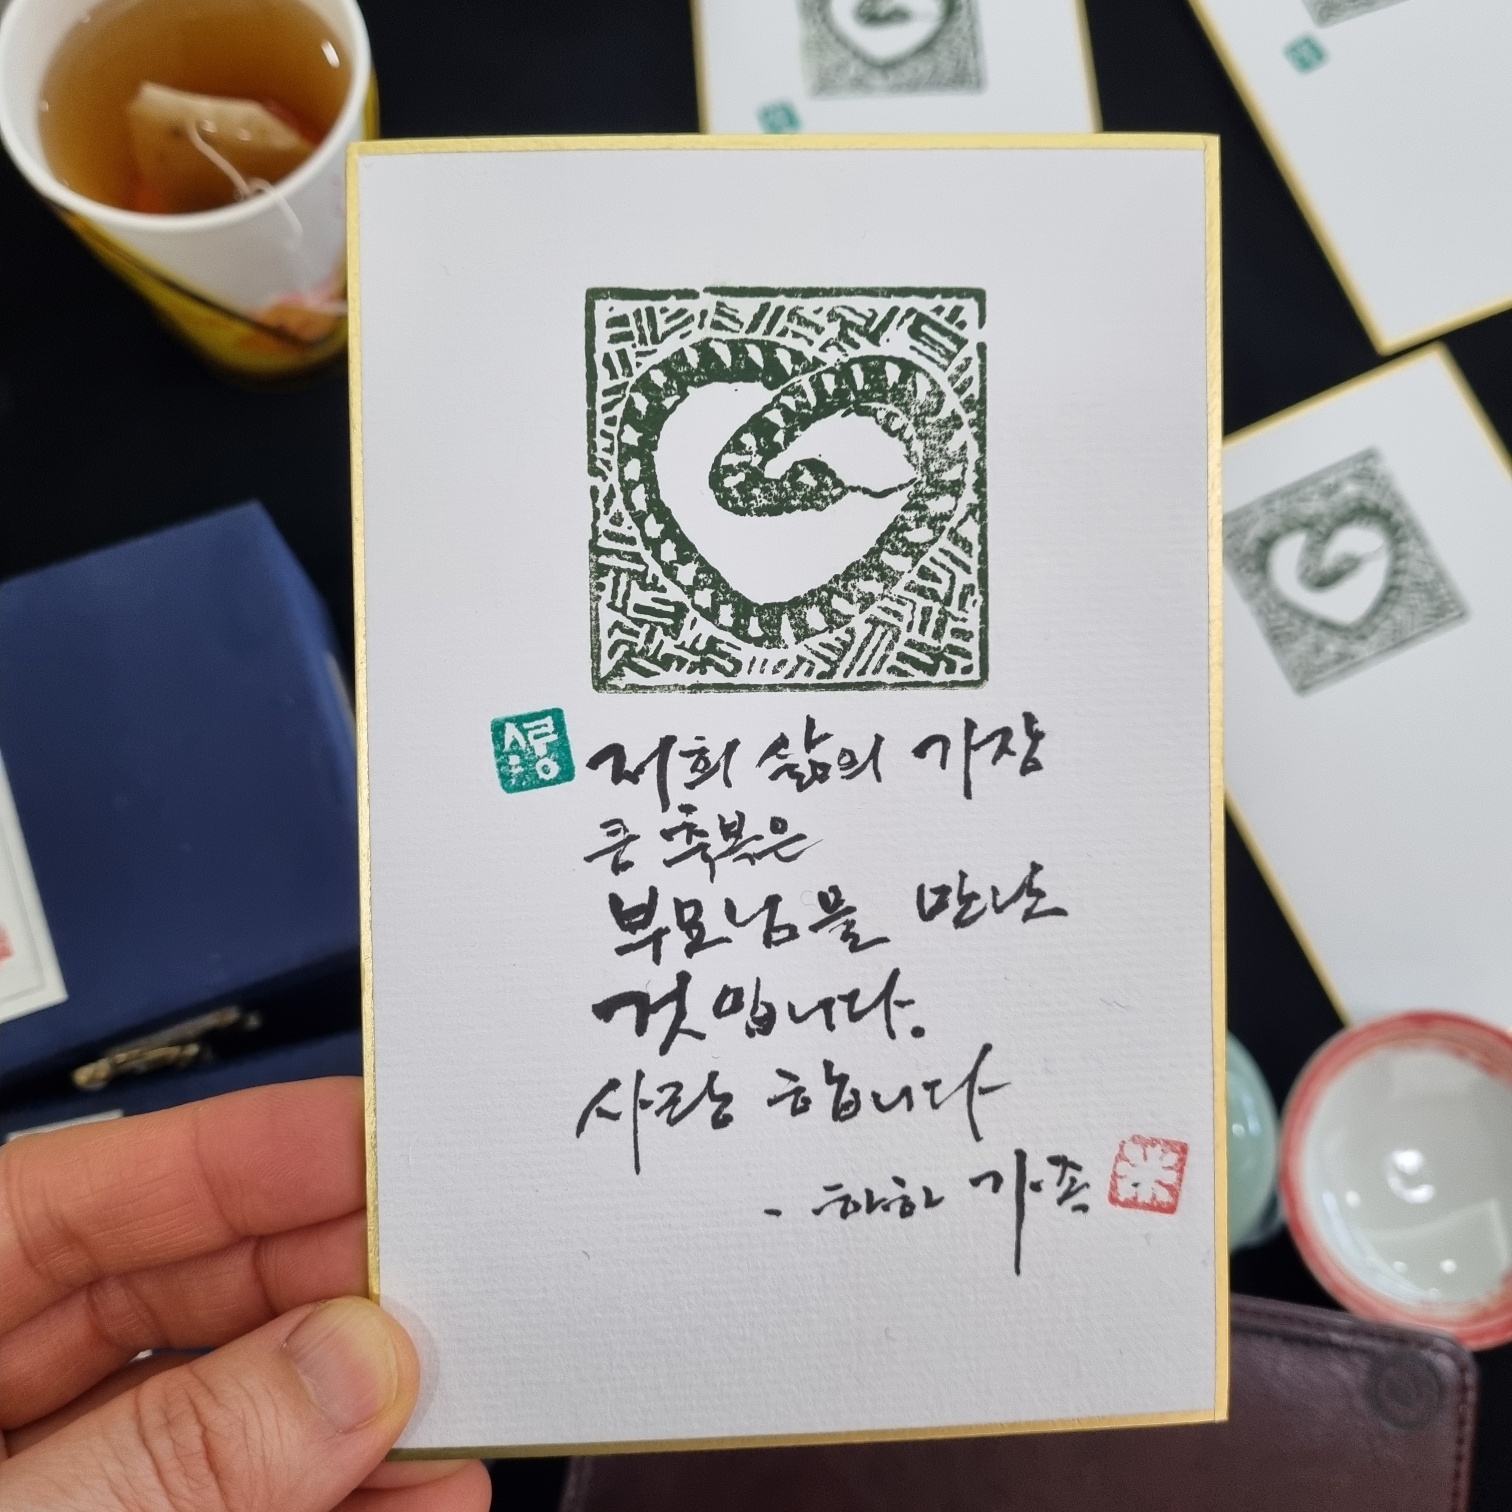 저희 삶의 가장
큰 축복은
부모님을 만난
것입니다.
사랑합니다
- 하하 가족